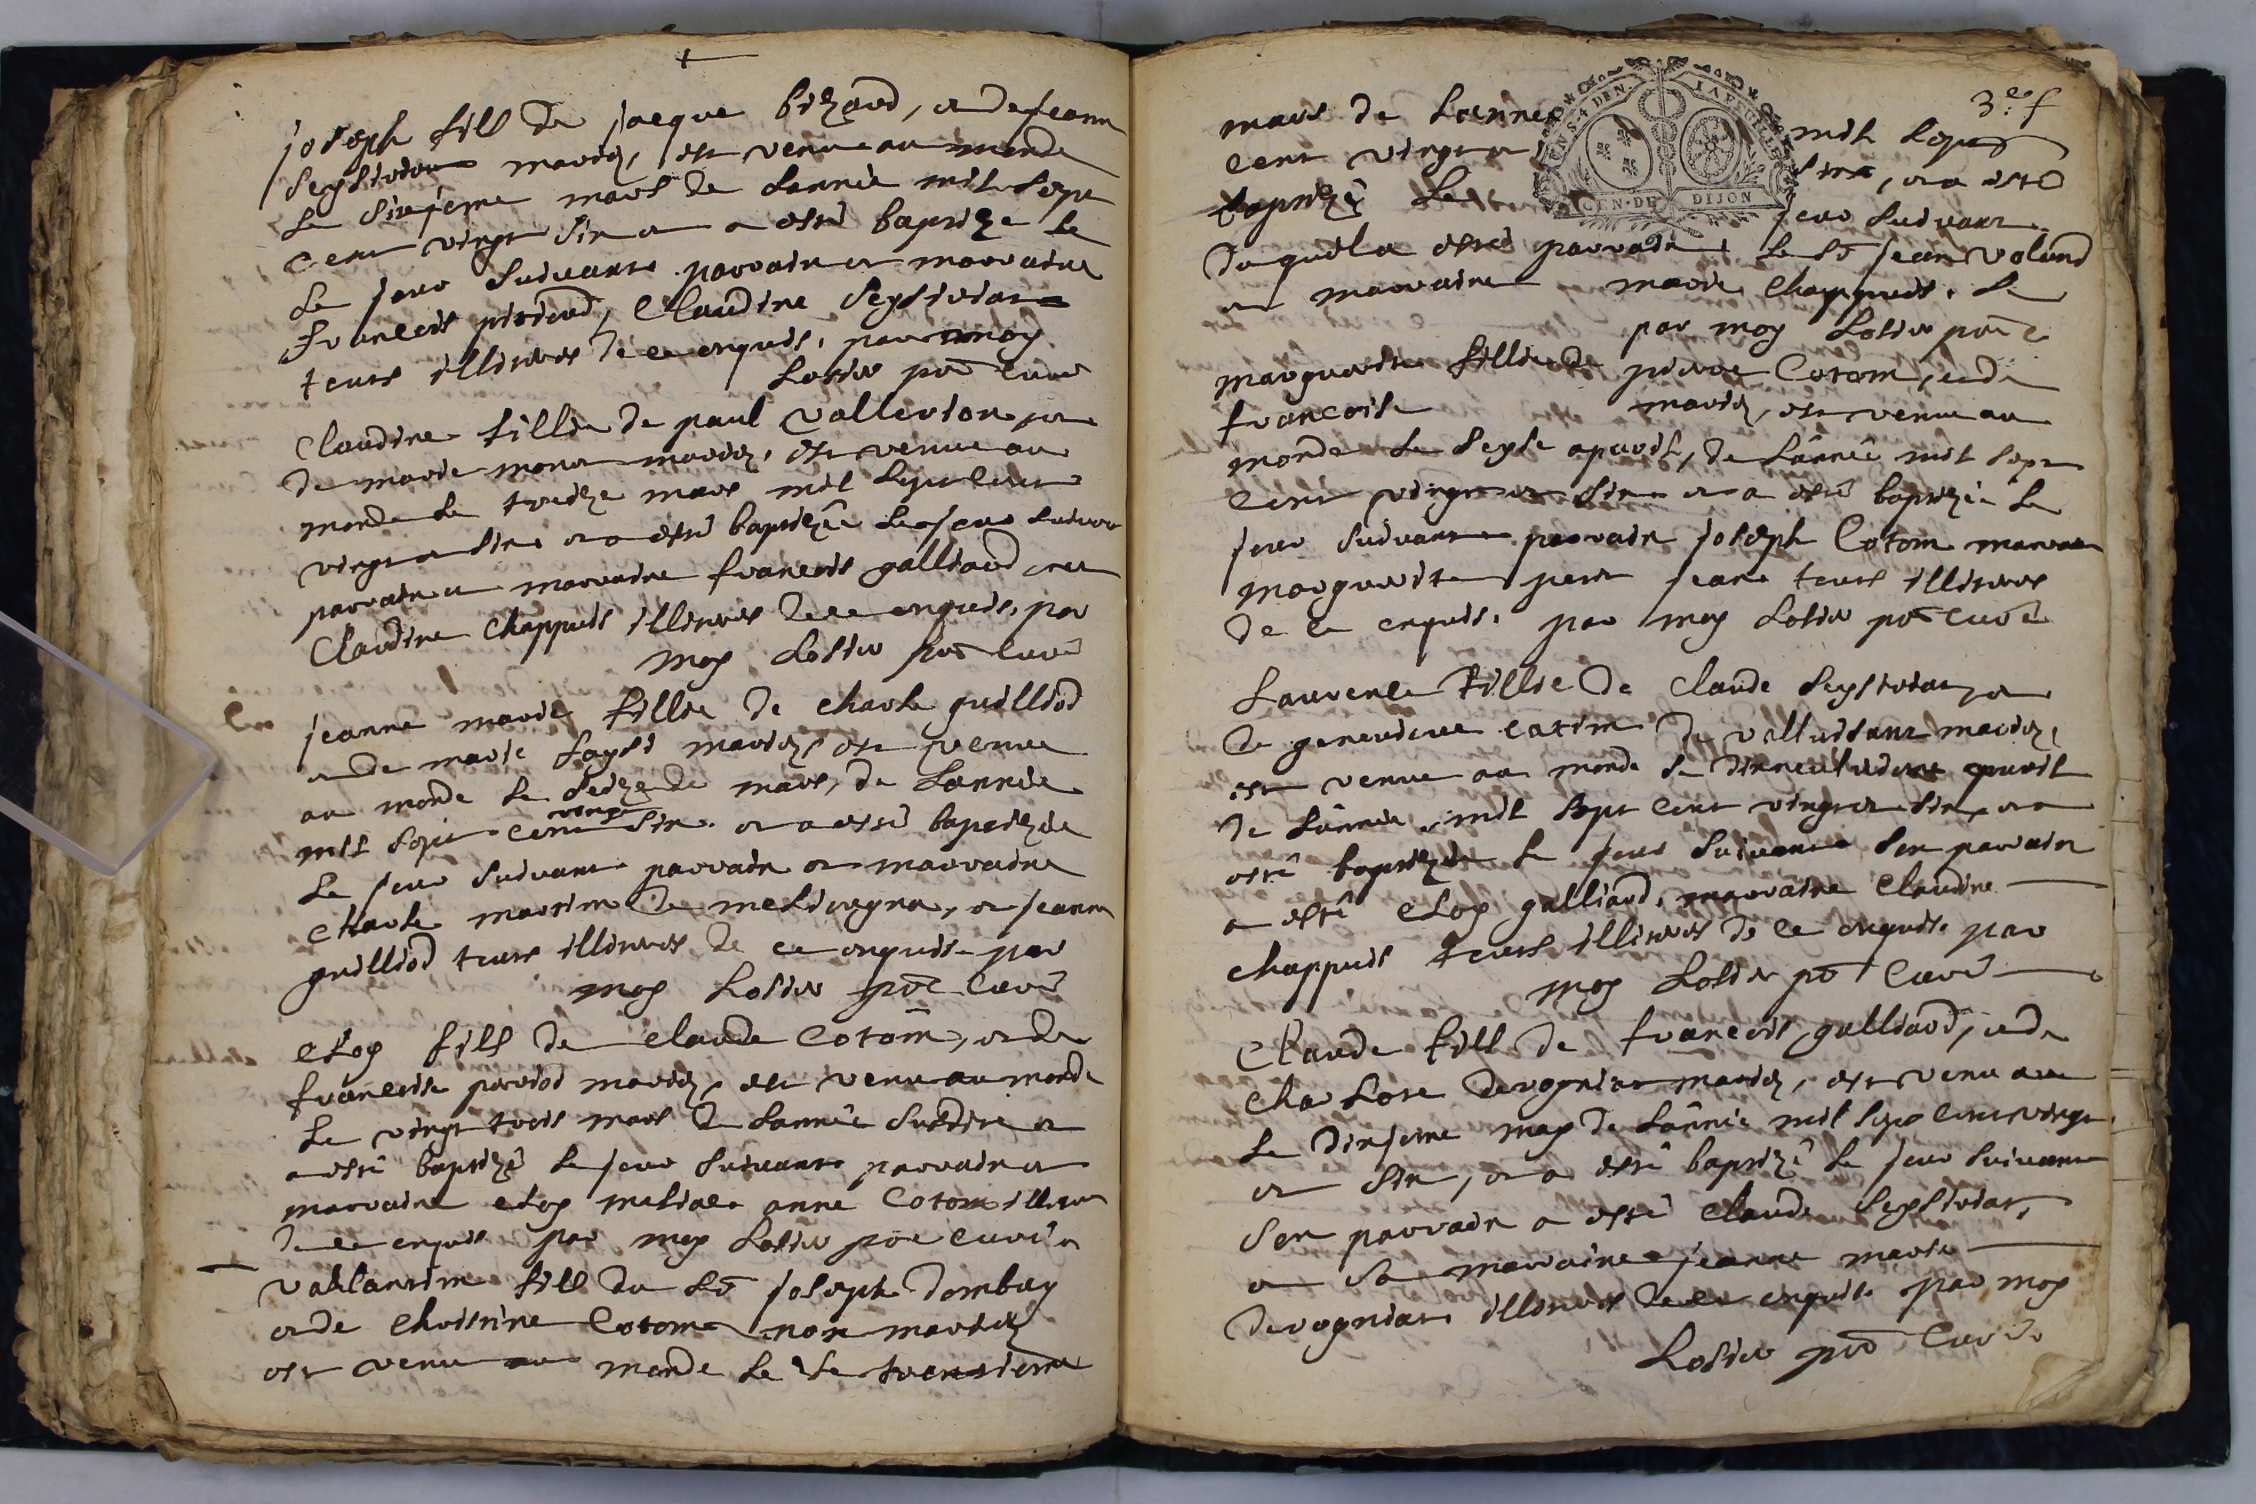 joseph fils de jacque bizard, et de jeanne
seystivar mariéz, est venu au monde
le sixjeme mars de lannée mil sept
cent vingt six et a esté baptize le
le jour suivant parrain et marraine
francois piroud, Claudine Seystivar
tous illitérés de ce enquis, par moy
Losier ptre Curé
Claudine fillie de paul vallerion, et
de marie monet mariéz, est venue au
monde le treize mars mil sept cent
vingt et six et a esté baptizée le jour suivant
parrain et marraine francois galliard et
Claudine Chappuis illitérés de ce enquis, par
moy Losier ptre Curé
jeanne marie fillie de charle guilliod
et de marie mariéz est venue
au monde le seize de mars, de lannée
mil sept cent vingt six et a esté baptizée
le jour suivant parrain et marraine
charle martin de et jeanne
guilliod tous illitérés de ce enquis par
moy Losier ptre Curé
eloy fils de claude Cotom, et de
francoise perriod mariéz, est venu au monde
le vingt trois mars de lannée susdite et
a esté baptizé le jour suivant parrain et
marraine eloy anne Cotom illitérés
de ce enquis par moy Losier ptre curé
vallantin fils du Sr joseph dombey
et de christine Cotom non mariéz
est venu au monde le le trentieme
3e f
mars de lannée mil sept
cent vingt et six, et a esté
baptizé le jour suivant
duquel a esté parrain le Sr jean voland
et marraine marie Chappuis. Le
par moy Losier ptre C
marguerite fillie de pierre Cotom, et de
francoise mariéz, est venue au
monde le seyse apvril, de lânnée mil sept
cent vingt et six et a esté baptizée le
jour suivant parrain joseph Cotom marraine
marguerite petit jean tous illitérés
de ce enquis. par moy Losier ptre curé
Laurence fillie de Claude Seystivar, et
de genevieve catim de mariéz,
est venue au monde le dixneufvieme apvril
de lannée mil sept cent vingt et six, et a
esté baptizée le jour suivant son parrain
a esté eloy galliard, marraine Claudine
chappuis tous illitérés de ce enquis par
moy Losier ptre Curé
Claude fils de francois galliard, et de
Cha Lote mariéz, est venu au
le dixjeme may de lânnée mil sept cent vingt
et six, et a esté baptizé le jour suivant
son parrain a esté Claude Seystivar,
et sa marraine jeanne marie
illitérés de ce enquis par moy
Losier ptre Curé
GEN. DE DIJON
LA FEUILLE